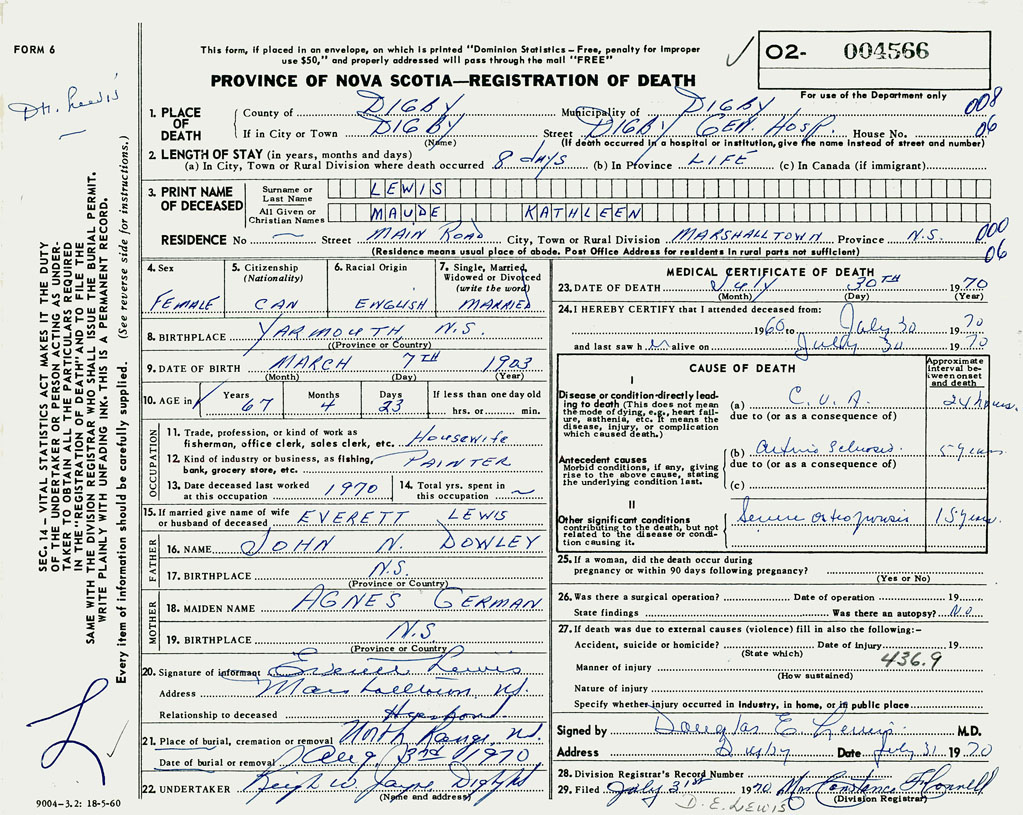 FORM 6
This form, if placed in an envelope, on which is printed "Dominion Statistics – Free, penalty for improper
use $50," and properly addressed will pass through the mail "FREE"
O2- 004566
For use of the Department only
PROVINCE OF NOVA SCOTIA—REGISTRATION OF DEATH
Dr. Lewis
008
06
1. PLACE OF DEATH
County of DIGBY Municipality of DIGBY
If in City or Town DIGBY Street DIGBY GEN. HOSP. House No.
(Name) (If death occurred in a hospital or institution, give the name instead of street and number)
2. LENGTH OF STAY (in years, months and days)
(a) In City, Town or Rural Division where death occurred 8 days (b) In Province LIFE (c) In Canada (if immigrant)
3. PRINT NAME OF DECEASED
Surname or Last Name LEWIS
All Given or Christian Names MAUDE KATHLEEN
000
06
RESIDENCE No — Street MAIN ROAD City, Town or Rural Division MARSHALLTOWN Province N.S.
(Residence means usual place of abode. Post Office Address for residents in rural parts not sufficient)
4. Sex FEMALE
5. Citizenship (Nationality) CAN
6. Racial Origin ENGLISH
7. Single, Married, Widowed or Divorced (write the word) MARRIED
8. BIRTHPLACE YARMOUTH N.S.
(Province or Country)
9. DATE OF BIRTH MARCH 7TH 1903
(Month) (Day) (Year)
10. AGE in Years 67 Months 4 Days 23 If less than one day old
hrs. or min.
OCCUPATION
11. Trade, profession, or kind of work as
fisherman, office clerk, sales clerk, etc. Housewife
12. Kind of industry or business, as fishing,
bank, grocery store, etc. PAINTER
13. Date deceased last worked
at this occupation 1970
14. Total yrs. spent in
this occupation ~
15. If married give name of wife
or husband of deceased EVERETT LEWIS
FATHER
16. NAME JOHN N. DOWLEY
17. BIRTHPLACE N.S.
(Province or Country)
MOTHER
18. MAIDEN NAME AGNES GERMAN
19. BIRTHPLACE N.S.
(Province or Country
20. Signature of informant Everett Lewis
Address Marshalltown N.S.
Relationship to deceased Husband
21. Place of burial, cremation or removal North Range N.S.
Date of burial or removal Aug 3rd 1970
22. UNDERTAKER
(Name and address)
MEDICAL CERTIFICATE OF DEATH
23. DATE OF DEATH July 30TH 1970
(Month) (Day) (Year)
24. I HEREBY CERTIFY that I attended deceased from:
1960 to July 30 1970
and last saw her alive on July 30 1970
CAUSE OF DEATH
Approximate interval between onset and death
I
Disease or condition directly leading to death (This does not mean the mode of dying, e.g., heart failure, asthenia, etc. It means the disease, injury, or complication which caused death.)
(a) C.V.A. 24 hours.
due to (or as a consequence of)
Antecedent causes
Morbid conditions, if any, giving rise to the above cause, stating the underlying condition last.
(b) 5 years
due to (or as a consequence of)
(c)
II
Other significant conditions
contributing to the death, but not related to the disease or condition causing it.
Severe osteoporosis 15 years.
25. If a woman, did the death occur during
pregnancy or within 90 days following pregnancy?
(Yes or No)
26. Was there a surgical operation? Date of operation 19
State findings Was there an autopsy? No
27. If death was due to external causes (violence) fill in also the following:–
Accident, suicide or homicide? Date of injury 19
(State which)
436.9
Manner of injury
(How sustained)
Nature of injury
Specify whether injury occurred in Industry, in home, or in public place
Signed by Douglas E. Lewis M.D.
Address Digby Date July 31 1970
28. Division Registrar's Record Number
29. Filed July 31st 1970 Mrs Constance
(Division Registrar)
D. E. LEWIS
SEC. 14 – VITAL STATISTICS ACT MAKES IT THE DUTY
OF THE UNDERTAKER OR PERSON ACTING AS UNDER-
TAKER TO OBTAIN ALL THE PARTICULARS REQUIRED
IN THE "REGISTRATION OF DEATH" AND TO FILE THE
SAME WITH THE DIVISION REGISTRAR WHO SHALL ISSUE THE BURIAL PERMIT.
WRITE PLAINLY WITH UNFADING INK. THIS IS A PERMANENT RECORD.
Every item of information should be carefully supplied. (See reverse side for instructions.)
L
9004–3.2: 18-5-60